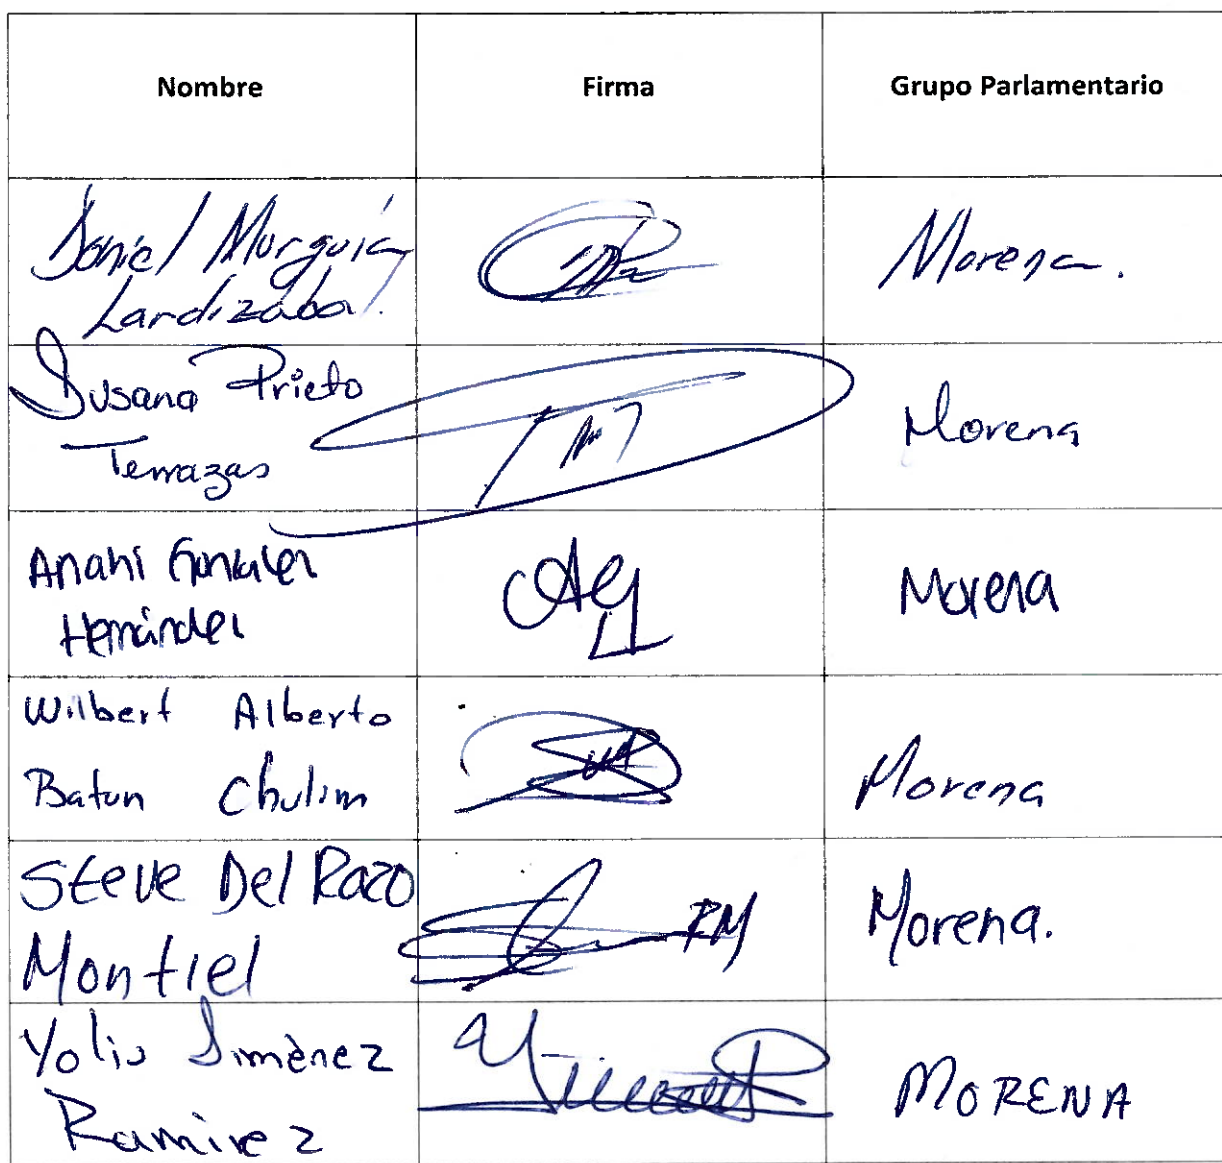 Nombre Firma Grupo Parlamentario
Daniel Murguía
Lardizabal.
Morena.
Susana Prieto
Terrazas
Morena
Anahí González
Hernández
Morena
Wilbert Alberto
Batun Chulim
Morena
Steve Del Razo
Montiel
RM
Morena.
Yolis Jiménez
Ramirez
MORENA